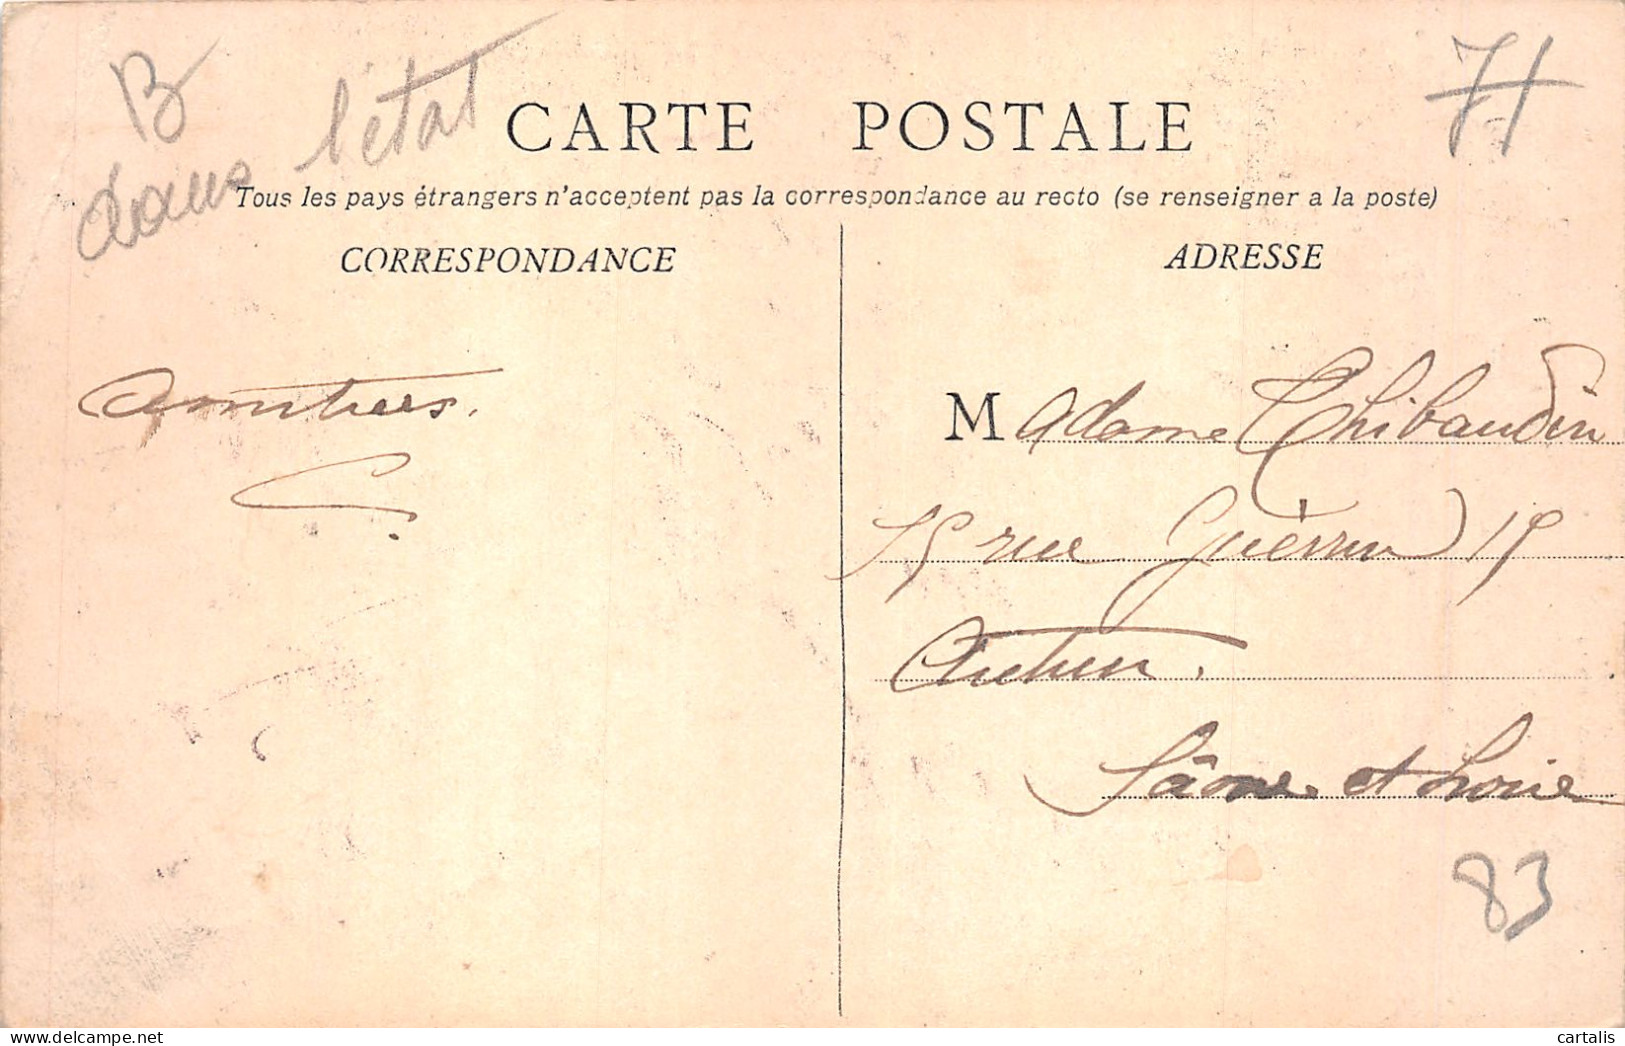 B
dans l'état
71
CARTE POSTALE
Tous les pays étrangers n'acceptent pas la correspondance au recto (se renseigner a la poste)
CORRESPONDANCE
ADRESSE
Amitiées.
C.
Madame Thibaudin
15 rue Guérin 15
Autun.
Sâone et Loire
83
delcampe.net
cartalis